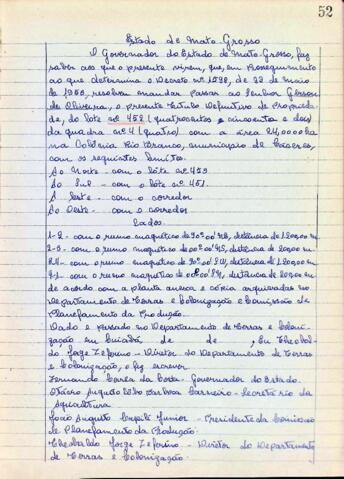 52
Estado de Mato-Grosso
O Governador do Estado de Mato-Grosso, faz
saber aos que o presente virem, que, em consequimento
ao que determina o Decreto nº 1598, de 22 de maio
de 1953, resolveu mandar passar ao Senhor Gerson
de Oliveira, o presente Titulo Definitivo de Proprieda-
de, do lote nº 452 (quatrocentos e cincoenta e dois)
da quadra nº 4 (quatro) com a área 24,0000 ha
na Colônia Rio Branco, município de Cáceres,
com os seguintes limites.
Ao Norte - com o lote nº 453
Ao Sul - com o lote nº 451.
A Leste - com o corredor
Ao Oeste - com o corredor
Lados.
1-2 - com o rumo magnetico de distância de
2-3 - com o rumo magnetico de distância de
com o rumo magnetico de distância de
4-1 - com o rumo magnetico de distância de
de acordo com a planta anexa e cópia arquivadas no
Departamento de Terras e Colonização e Comissão de
Planejamento da Produção.
Dado e passado no Departamento de Terras e Coloni-
zação em Cuiabá, de de , Eu Theobal-
do Jorge Zeferino - Diretor do Departamento de Terras
e Colonização, o fiz escrever
Fernando Corrêa da Costa - Governador do Estado.
Otávio Augusto Barbosa Carneiro - Secretário da
Agricultura
João Augusto Junior - Presidente da Comissão
de Planejamento da Produção.
Theobaldo Jorge Zeferino - Diretor do Departamento
de Terras e Colonização.